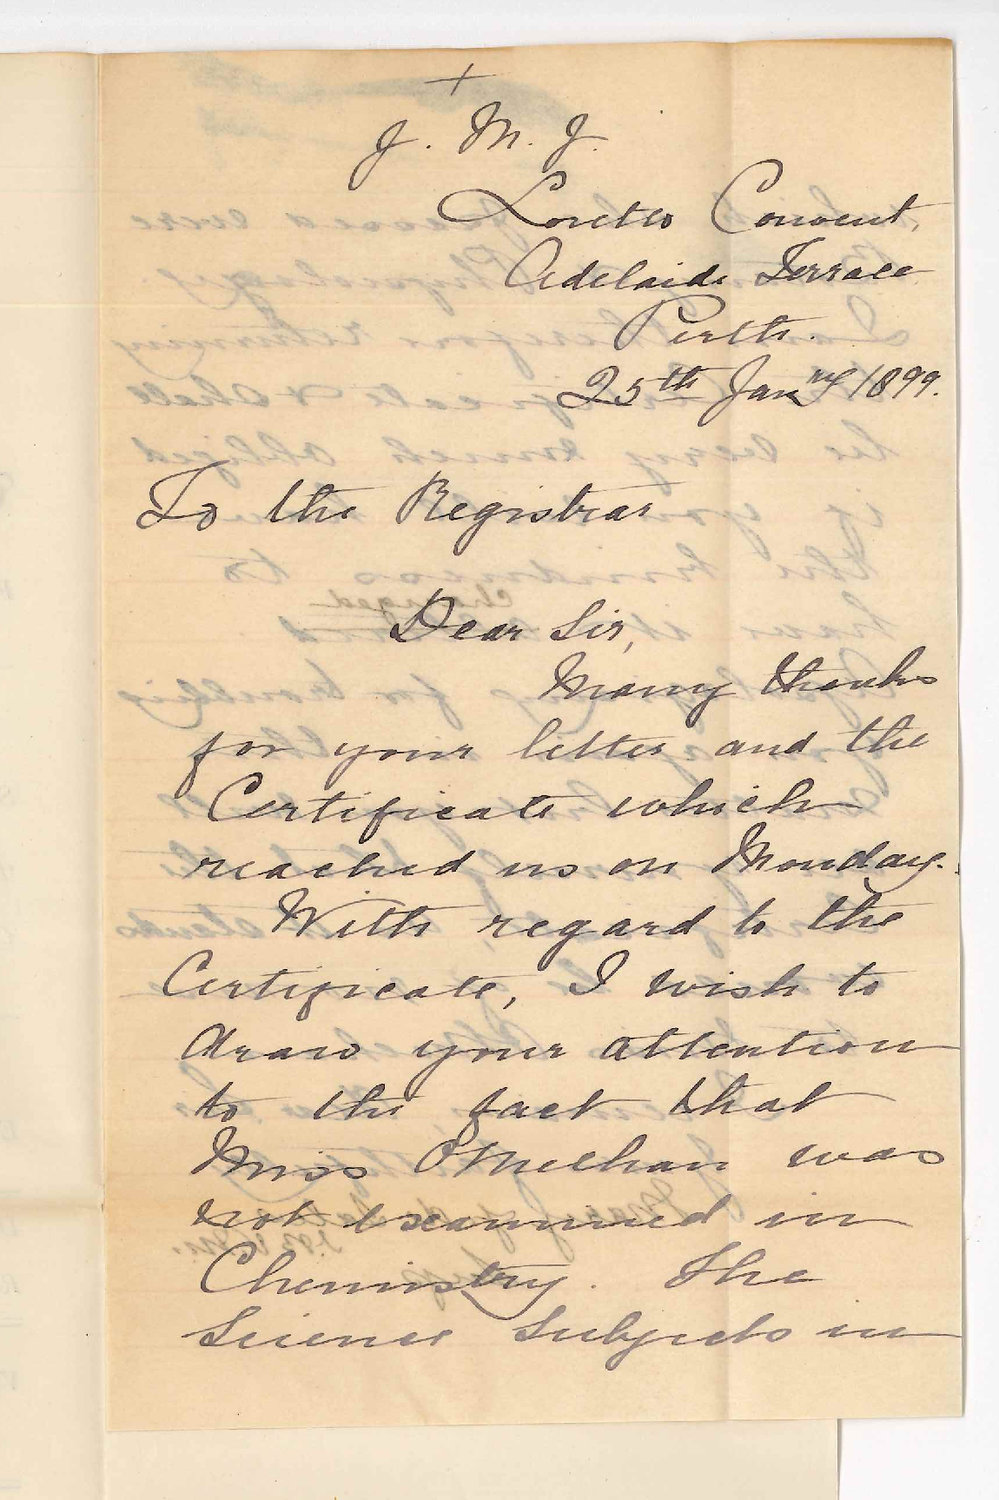 +
J. M. J.
Loretto Convent,
Adelaide Terrace
Perth.
25th Jany 1899.
To the Registrar
Dear Sir,
Many thanks
for your letter and the
Certificate which
reached us on Monday.
With regard to the
Certificate, I wish to
draw your attention
to the fact that
Miss O'Meehan was
not examined in
Chemistry. The
Science Subjects in